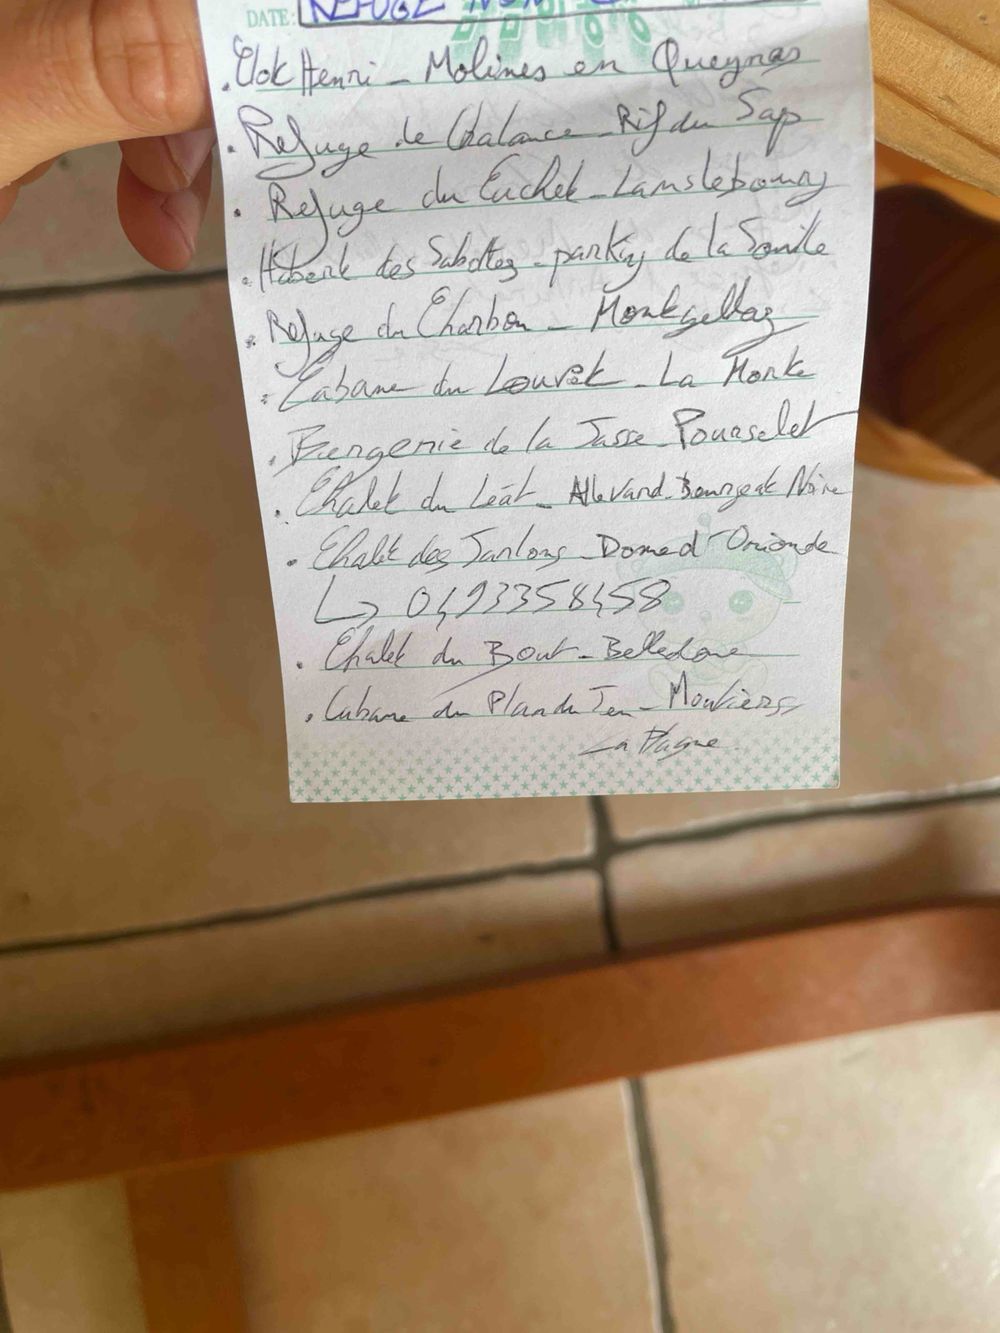 DATE: REFUGE NON
. Clot Henri - Molines en Queyras
. Refuge de Chalance - Rif du Sap
. Refuge du Cuchet - Lanslebourg
. Habert des Sabottes - parking de la Souille
. Refuge du Charbon - Montgellaz
. Cabane du Louvet - La Monte
. Bergerie de la Jasse - Pourselet
. Chalet du Léat - Allevard - Bourget Noire
. Chalet des Janlons - Dome d'Orionde
↳ 0493358458
. Chalet du Bout - Belledone
. Cabane du Plan du Jeu - Moutiers
La Plagne